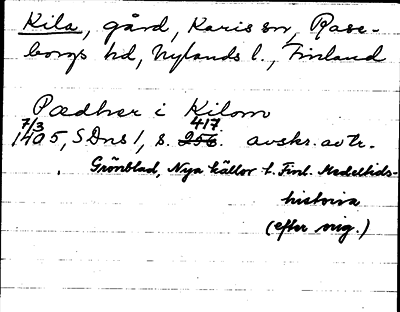 Kila, gård, Karis sn, Rase-
borgs hd, Nylands l., Finland
Pædher i Kilom
417
7/3 1405, SDns 1, s. 256. avskr. av tr.
Grönblad, Nya källor t. Finl. Medeltids-
historia
(efter orig.)